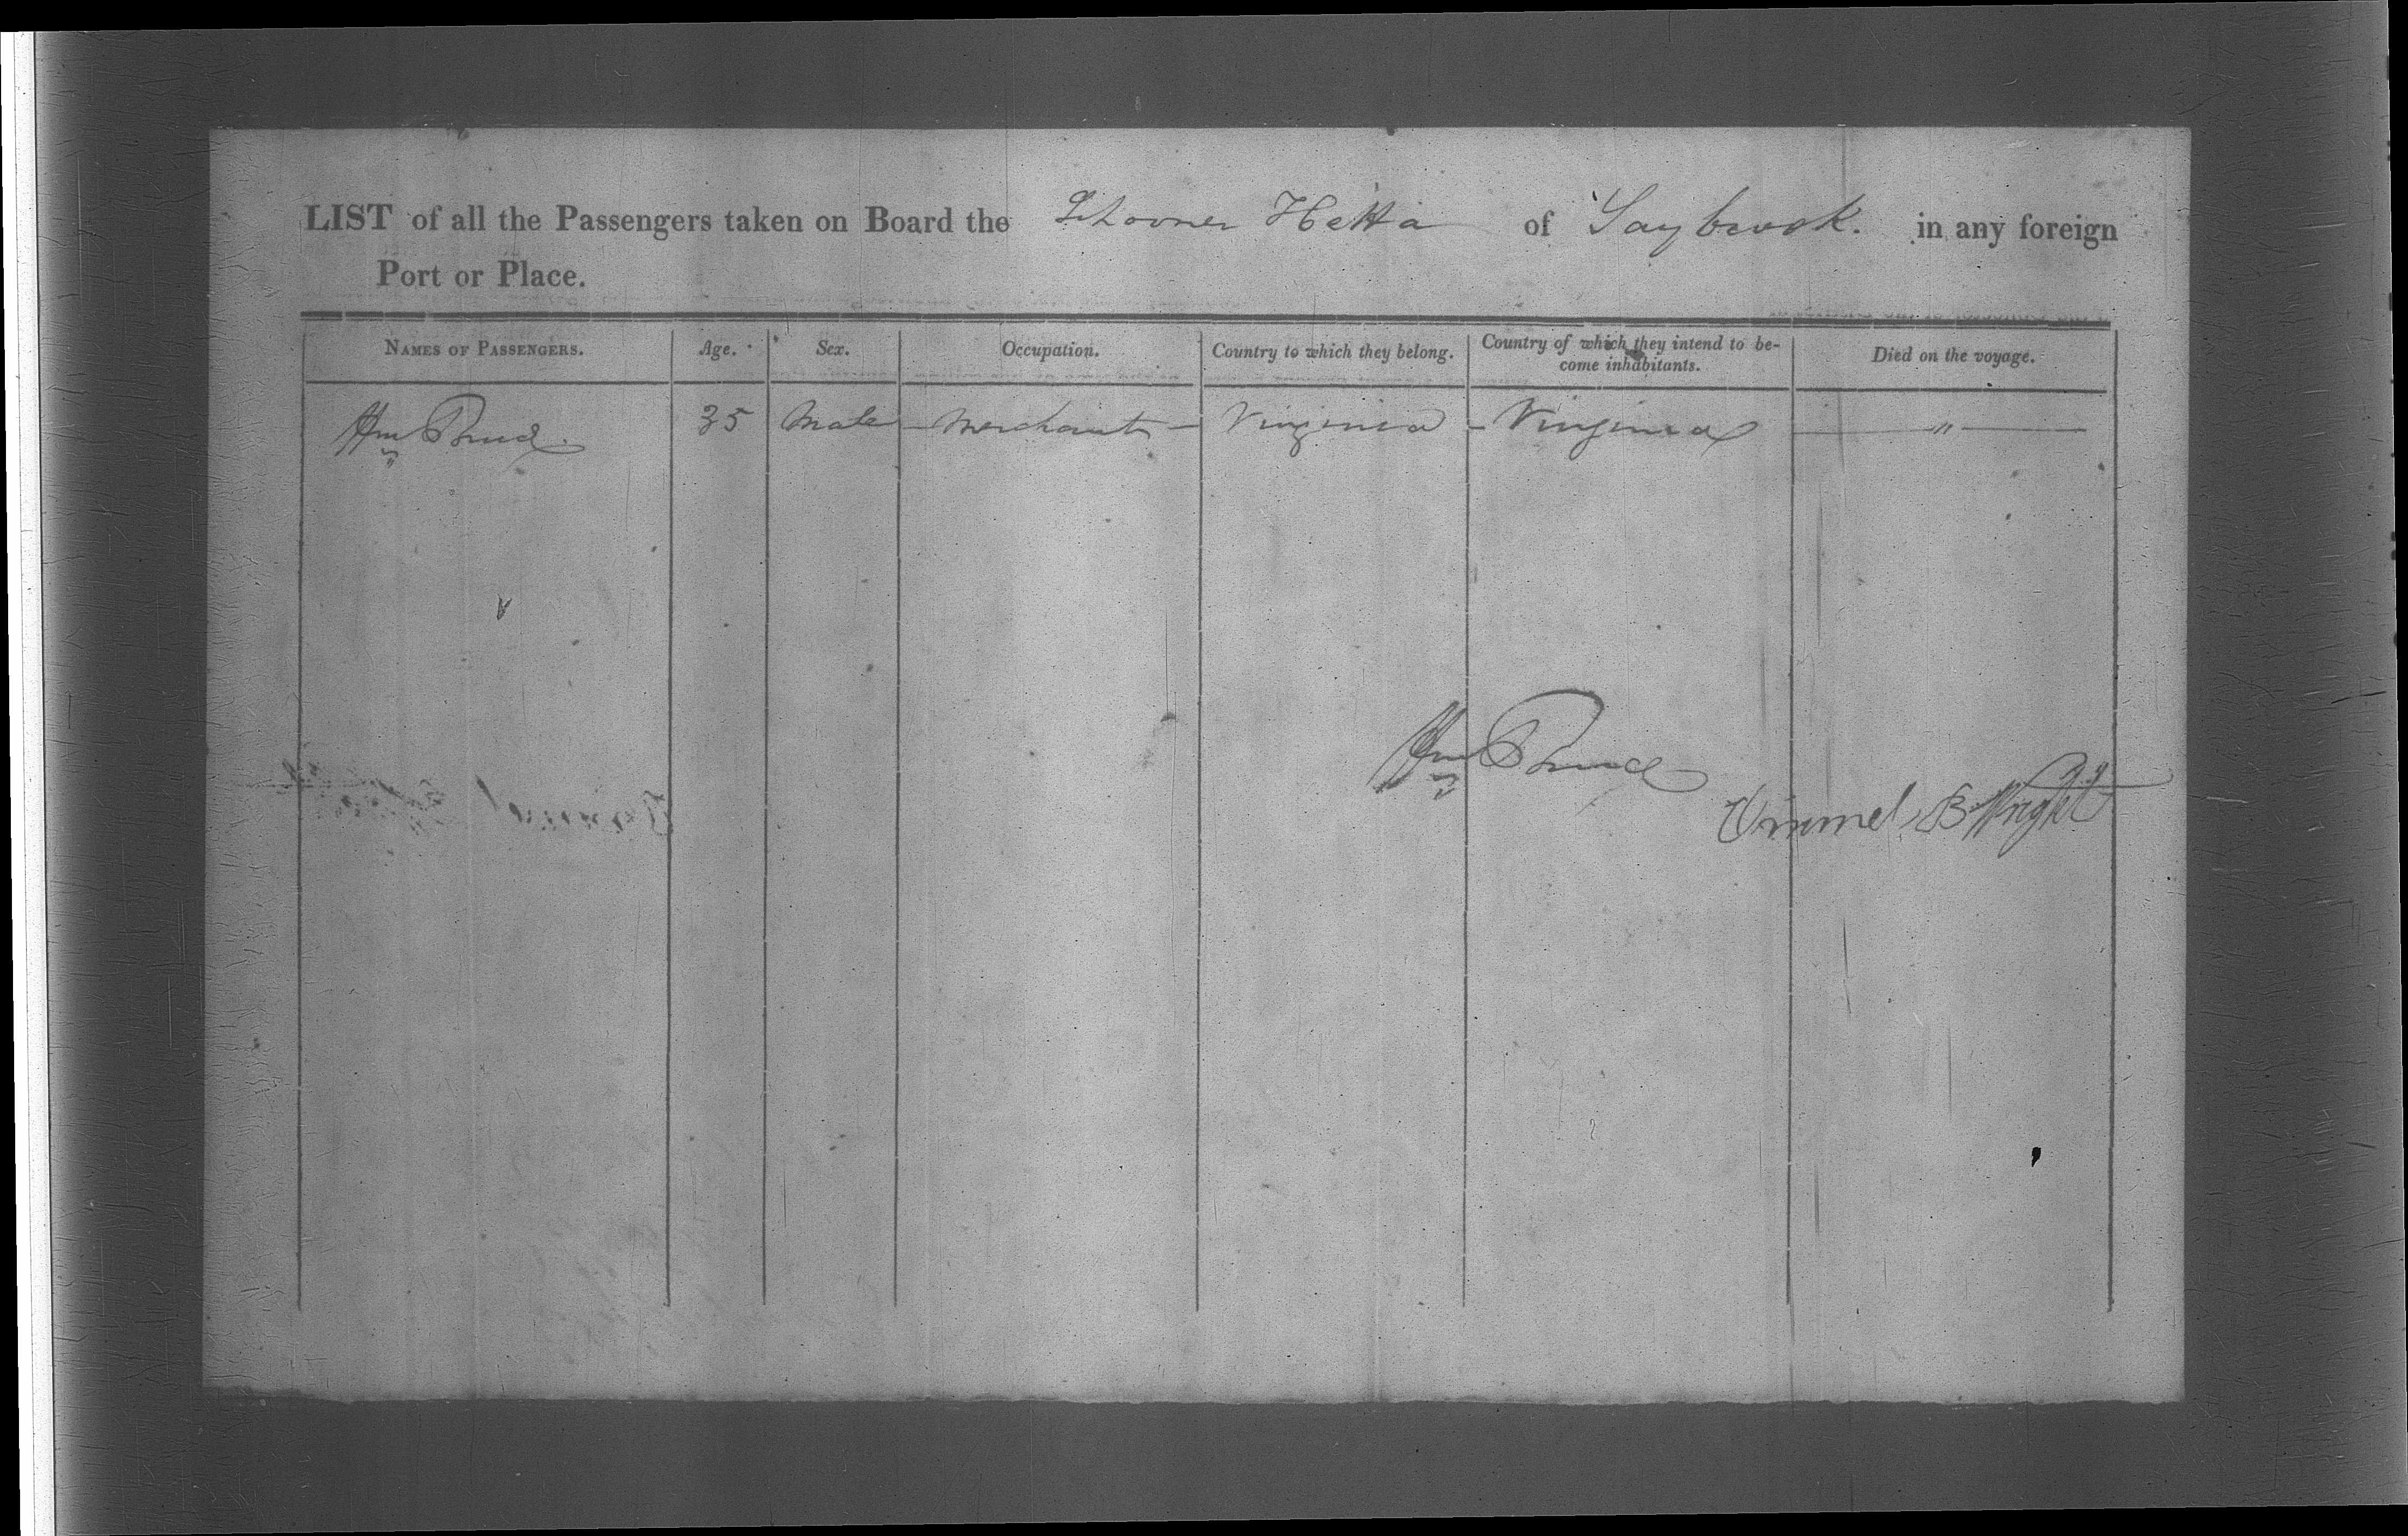 LIST of all the Passengers taken on Board the Schooner Hetta of Saybrook. in any foreign
Port or Place.
NAMES OF PASSENGERS. Age. Sex. Occupation. Country to which they belong. Country of which they intend to be-
come inhabitants. Died on the voyage.
Wm 35 Male – Merchant – Virginia – Virginia — " —
Wm
B Wright